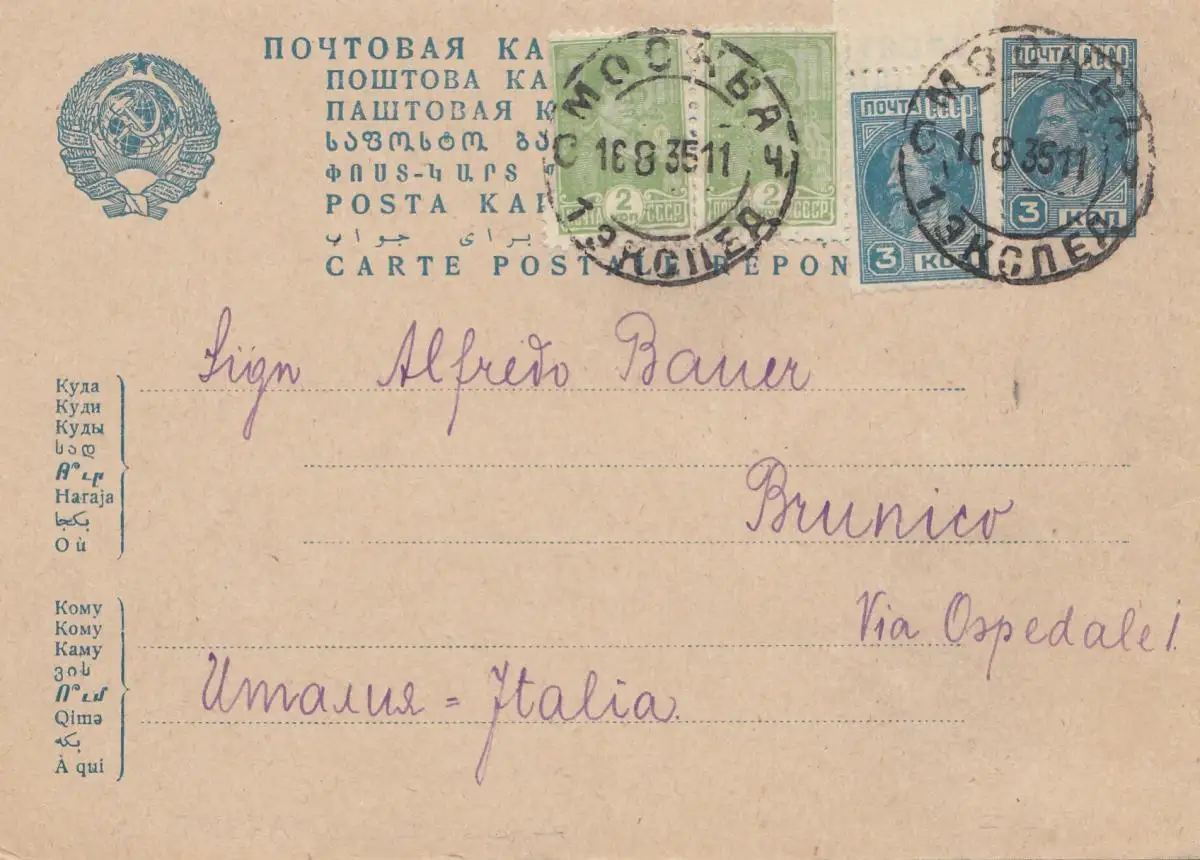 ПОЧТОВАЯ КА
ПОШТОВА КА
ПАШТОВАЯ К
ՓՈՍՏ-ԿԱՐՏ
POSTA KA
برای جواب
CARTE POSTALE RÉPON
ПОЧТА СССР
3 КОП
ПОЧТА СССР
3 КОП
2
ПОЧТА СССР
2
ПОЧТА СССР
МОСКВА
16 8 35 11
1 ЭКСПЕД
МОСКВА
16 8 35 11
1 ЭКСПЕД
Sign Alfredo Bauer
Brunico
Via Ospedale 1.
Италия = Italia.
Куда
Куди
Куды
სად
Ո՞ւր
Haraja
بكجا
Où
Кому
Кому
Каму
ვის
Ո՞ւմ
Qimə
بكه
À qui